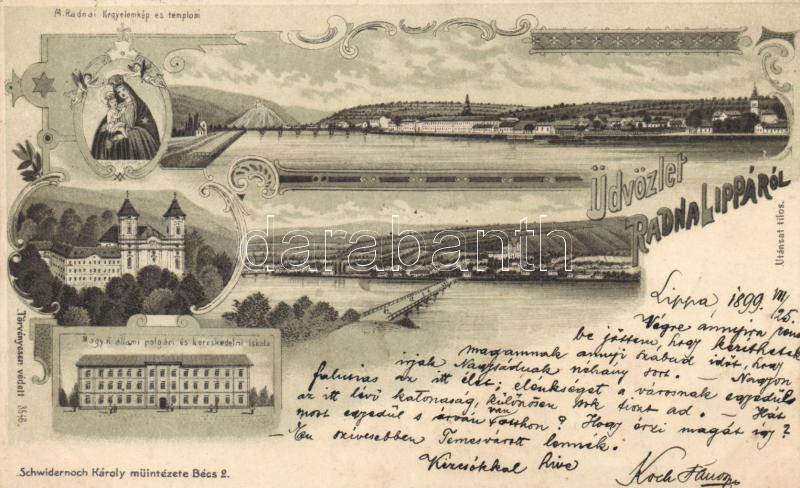 M. Radnai Kegyelemkép es templom
Üdvözlet
RADNA LIPPÁRÓL
Utánzat tilos.
darabanth
.com
Magy. k. állami polgári és kereskedelmi iskola
Törvényesen védett 3546.
Lippa, 1899 VII/25.
Végre annyira
be jöttem, hogy keríthetek
magamnak annyi szabad időt, hogy
írjak Nagysádnak néhány sort. – Nagyon
falusias az itt élet; elenkséget a városnak egyedül
az itt lévő katonaság, különösen sok tiszt ad. – Hát
most egyedül s árván van otthon? Hogy érzi magát így?
szívesebben Temesvárott lennék.
Kézcsókkal hive
Koch János
Schwidernoch Károly müintézete Bécs 2.